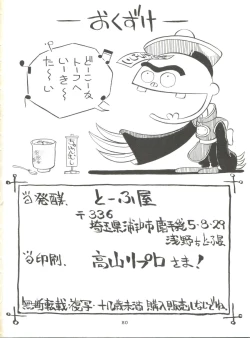 おくずけ
どーこーな
トーフへ
いーきー
たーい
当発酵．とーふ屋
〒336
埼玉県浦和市
5-8-29
浅野ちとふ屋
当印刷．高山リプロさま！
無断転載・複写・十八歳未満購入販売しないどね。
80